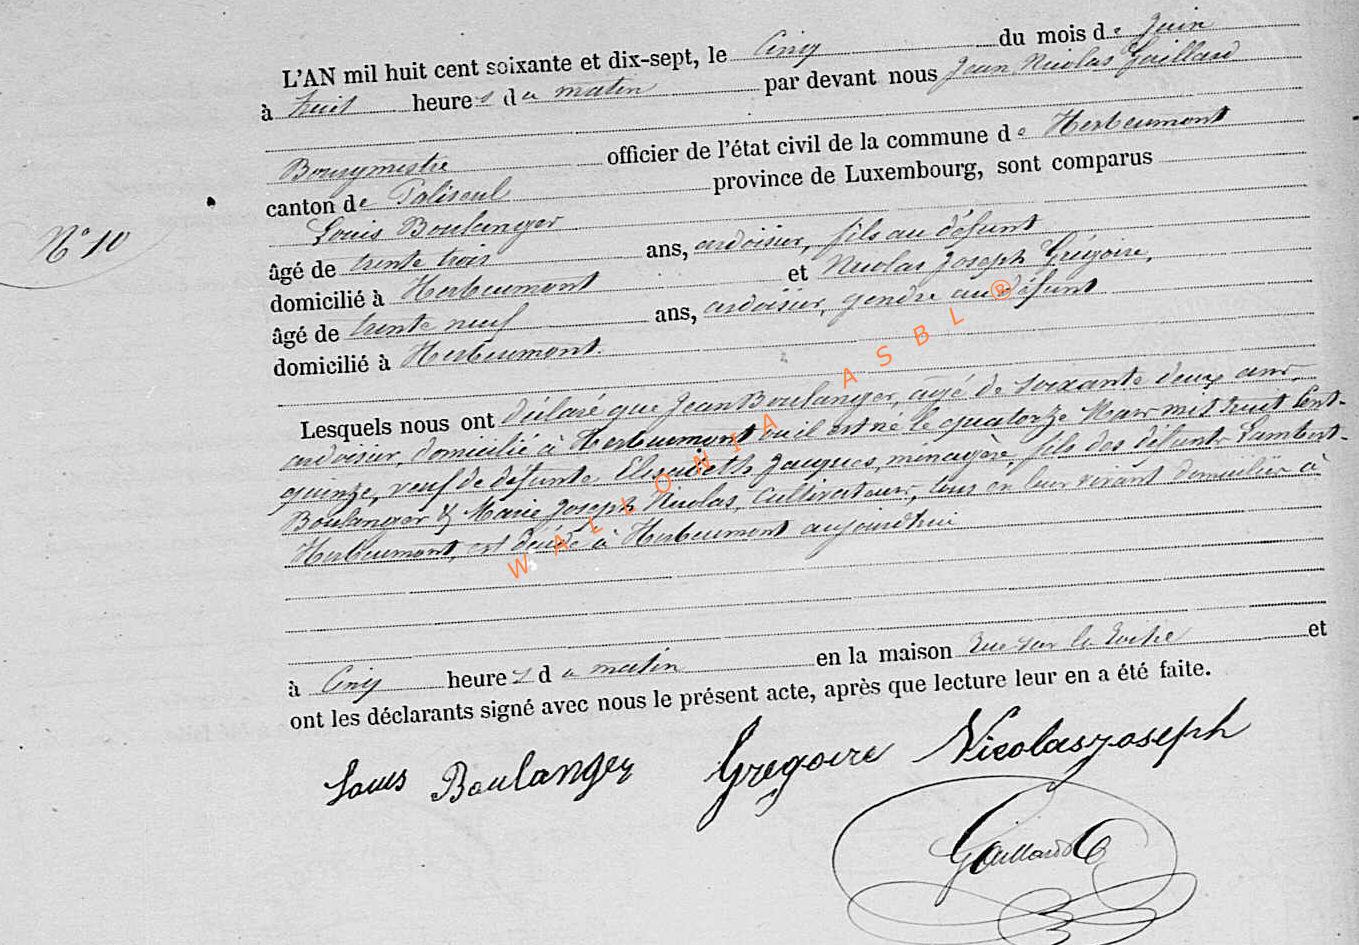 L'AN mil huit cent soixante et dix-sept, le Cinq du mois de Juin
à huit heures du matin par devant nous Jean Nicolas Gaillard
Bourgmestre officier de l'état civil de la commune de Herbeumont
canton de Paliseul province de Luxembourg, sont comparus
Louis Boulanger
N° 10
âgé de trente trois ans, ardoisier, fils au défunt
domicilié à Herbeumont et Nicolas Joseph Grégoire,
âgé de trente neuf ans, ardoisier, gendre au défunt
domicilié à Herbeumont.
Lesquels nous ont déclaré que Jean Boulanger, agé de soixante deux ans,
ardoisier, domicilié à Herbeumont où il est né le quatorze Mars mil huit Cent-
quinze, veuf de défunte Elisabeth Jacques, ménagère, fils des défunts Lambert-
Boulanger & Marie Joseph Nicolas, Cultivateurs, tous en leur vivant domiciliés à
Herbeumont, est décédé à Herbeumont aujourd'hui
à Cinq heures du matin en la maison Rue sur la Roche et
ont les déclarants signé avec nous le présent acte, après que lecture leur en a été faite.
Louis Boulanger Gregoire Nicolas joseph
Gaillard
WALLONIA ASBL ®